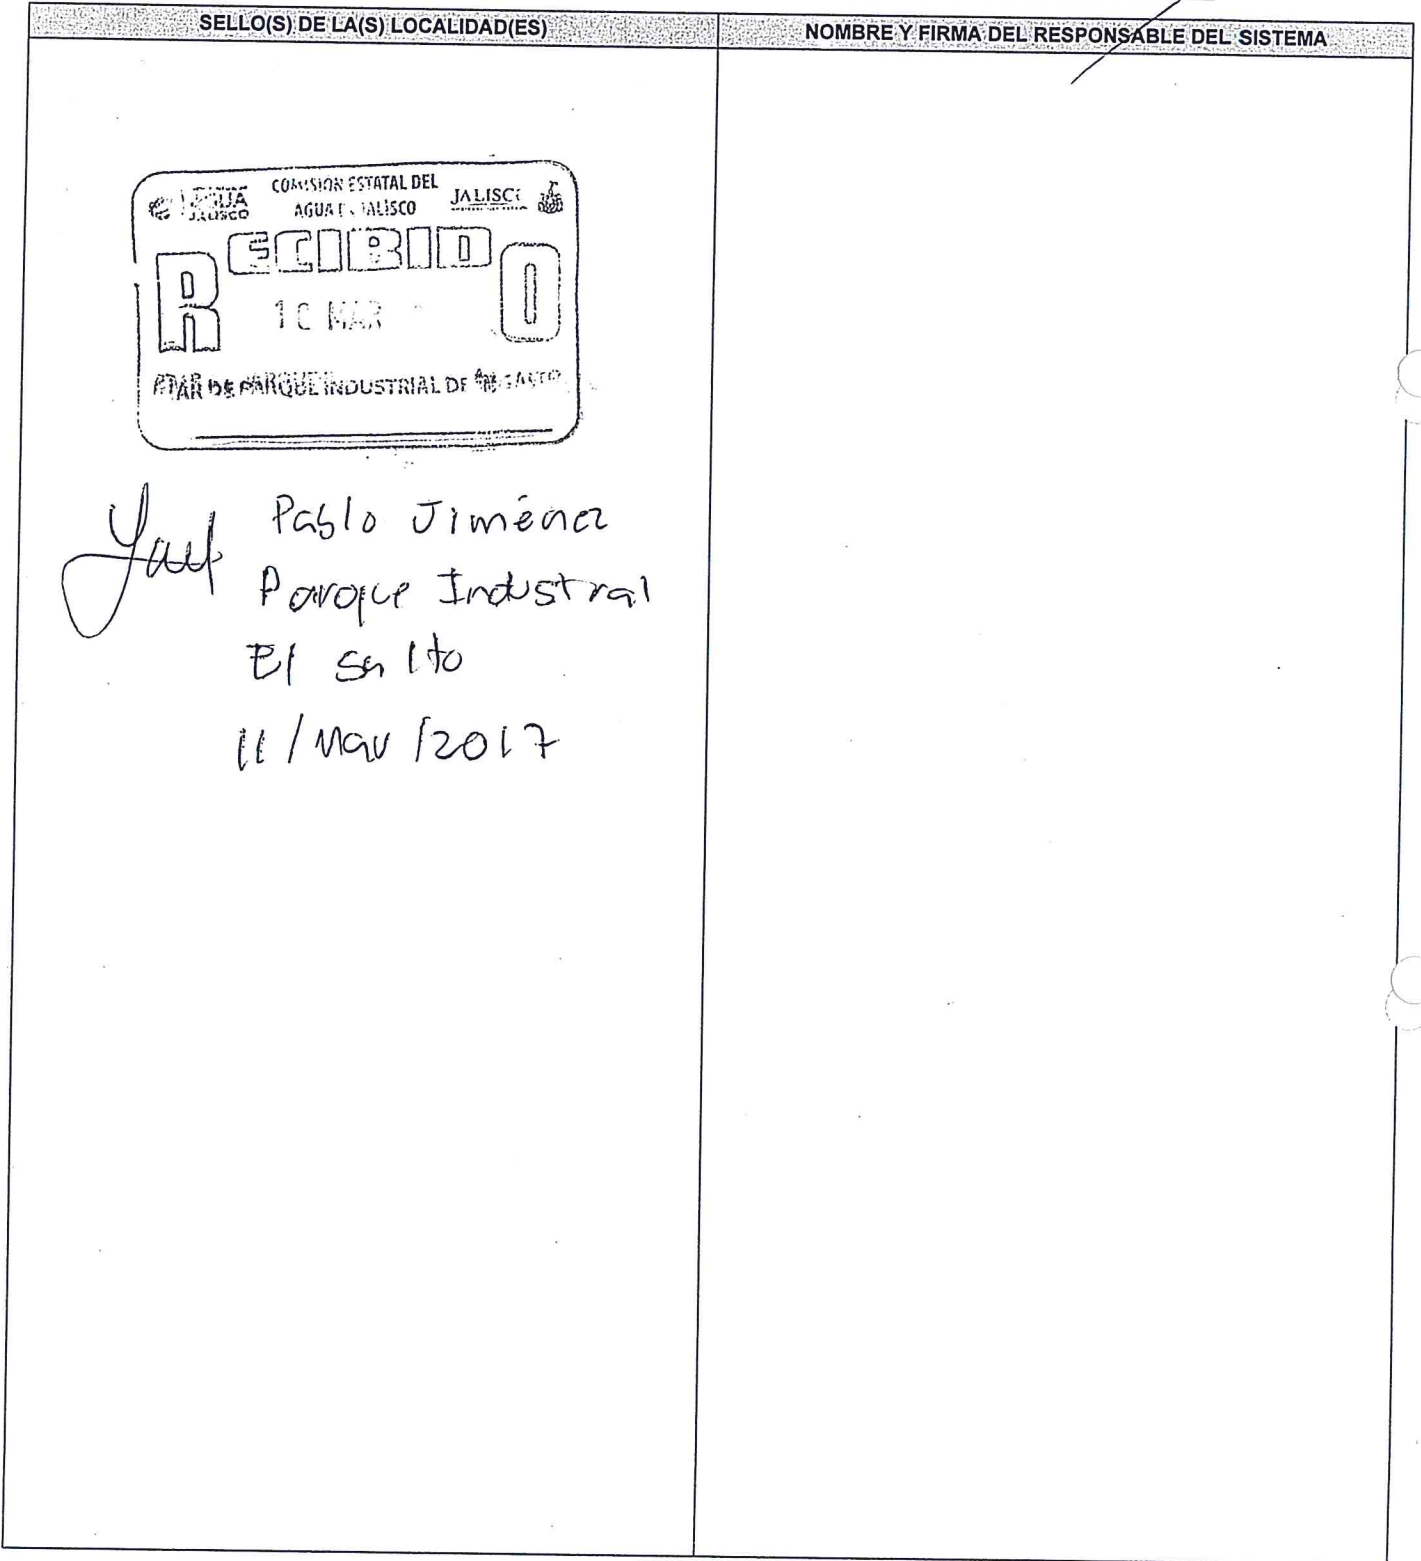 SELLO(S) DE LA(S) LOCALIDAD(ES)
NOMBRE Y FIRMA DEL RESPONSABLE DEL SISTEMA
COMISION ESTATAL DEL
AGUA JALISCO
JALISCO
RECIBIDO
MAR
PTAR DE PARQUE INDUSTRIAL DE
Pablo Jiménez
Parque Industral
El salto
11/Mar/2017